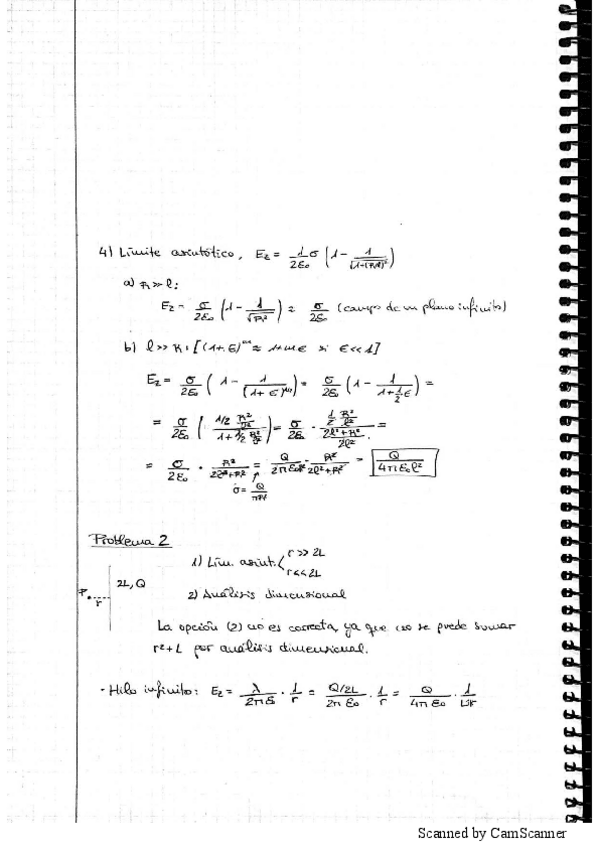 4) Límite asintótico, E₂ = 1/2ε₀ σ (1 - 1/√(1+(R/l)²))
a) R >> l:
E₂ = σ/2ε₀ (1 - 1/√R²) ≈ σ/2ε₀ (campo de un plano infinito)
b) l >> R: [(1+ε)ᵐ ≈ 1+mε si ε<<1]
E₂ = σ/2ε₀ (1 - 1/(1+ε)^1/2) = σ/2ε₀ (1 - 1/(1+1/2 ε)) =
= σ/2ε₀ (1/2 R²/l² / (1+1/2 R²/l²)) = σ/2ε₀ · (1/2 R²/l²) / ((2l²+R²)/2l²) =
= σ/2ε₀ · R²/(2l²+R²) = Q/2πε₀R² · R²/(2l²+R²) = Q/4πε₀l²
σ = Q/πR²
Problema 2
1) Lím. asint. { r >> 2L
r << 2L
P
r
2L, Q
2) Análisis dimensional
La opción (2) no es correcta, ya que no se puede sumar
r²+L por análisis dimensional.
· Hilo infinito: E₂ = λ/2πε₀ · 1/r = Q/2L / 2πε₀ · 1/r = Q/4πε₀ · 1/Lr
Scanned by CamScanner